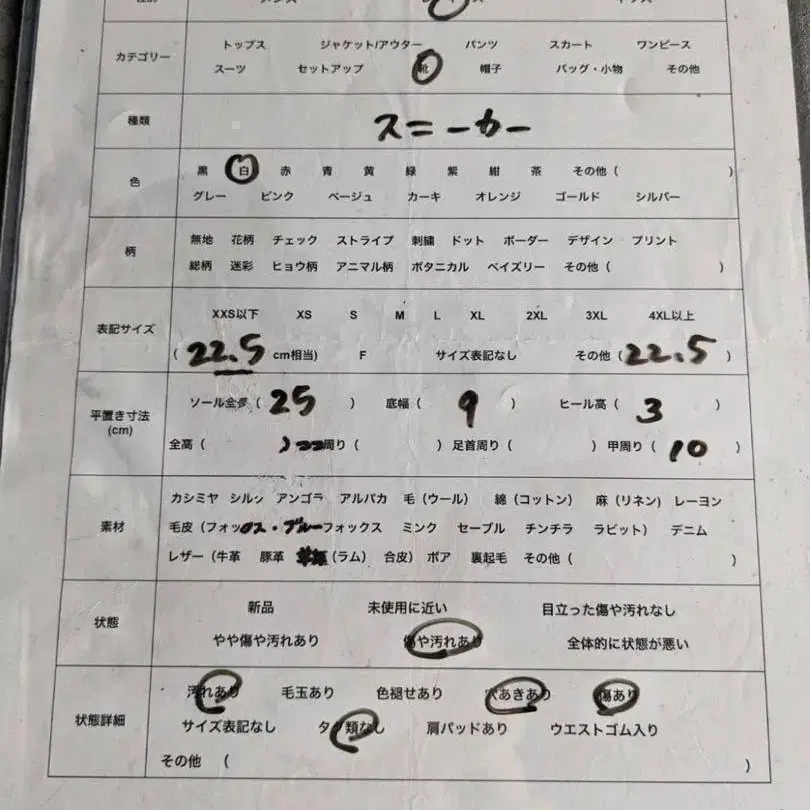 カテゴリー
トップス ジャケット/アウター パンツ スカート ワンピース
スーツ セットアップ 靴 帽子 バッグ・小物 その他
種類 スニーカー
色
黒 白 赤 青 黄 緑 紫 紺 茶 その他 ( )
グレー ピンク ベージュ カーキ オレンジ ゴールド シルバー
柄
無地 花柄 チェック ストライプ 刺繍 ドット ボーダー デザイン プリント
総柄 迷彩 ヒョウ柄 アニマル柄 ボタニカル ペイズリー その他 ( )
表記サイズ
XXS以下 XS S M L XL 2XL 3XL 4XL以上
( 22.5 cm相当) F サイズ表記なし その他 ( 22.5 )
平置き寸法
(cm)
ソール全長 ( 25 ) 底幅 ( 9 ) ヒール高 ( 3 )
全高 ( ) 周り ( ) 足首周り ( ) 甲周り ( 10 )
素材
カシミヤ シルク アンゴラ アルパカ 毛 (ウール) 綿 (コットン) 麻 (リネン) レーヨン
毛皮 (フォックス・ブルーフォックス ミンク セーブル チンチラ ラビット) デニム
レザー (牛革 豚革 (ラム) 合皮) ボア 裏起毛 その他 ( )
状態
新品 未使用に近い 目立った傷や汚れなし
やや傷や汚れあり 傷や汚れあり 全体的に状態が悪い
状態詳細
汚れあり 毛玉あり 色褪せあり 穴あきあり 傷あり
サイズ表記なし タグ類なし 肩パッドあり ウエストゴム入り
その他 ( )